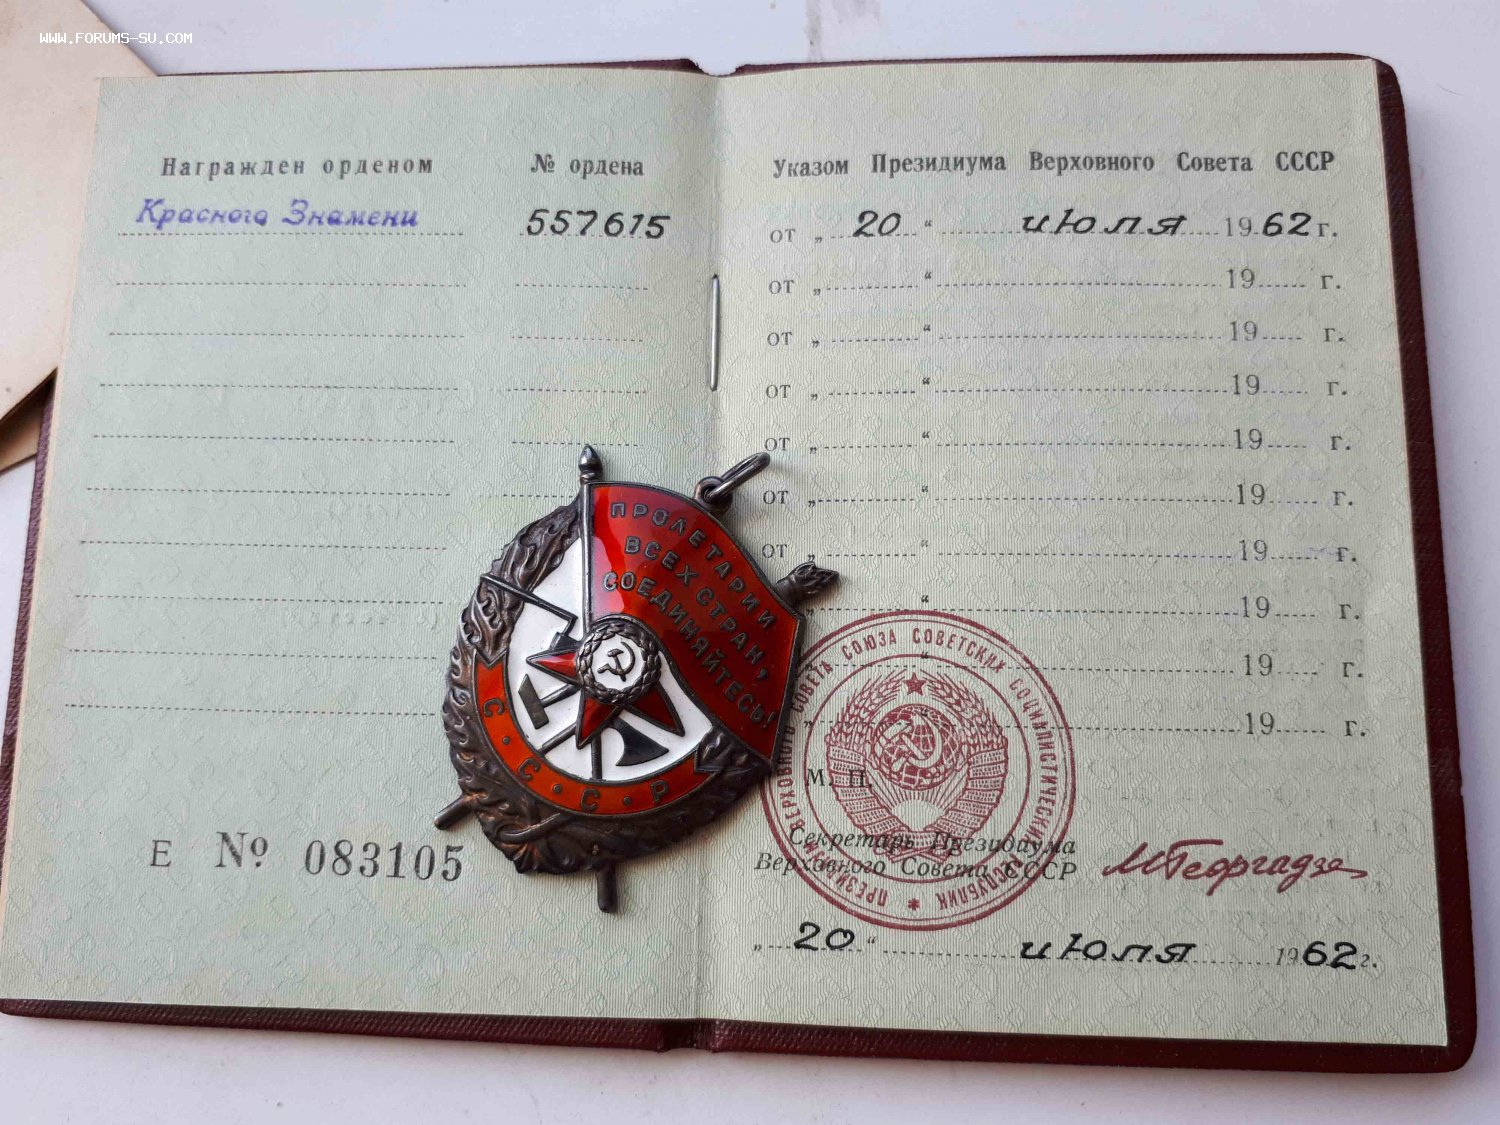 WWW.FORUMS-SU.COM
Награжден орденом № ордена
Красного Знамени 557615
Е № 083105
Указом Президиума Верховного Совета СССР
от „ 20 “ июля 1962 г.
от „ “ 19 г.
от „ “ 19 г.
от „ “ 19 г.
от „ “ 19 г.
от „ “ 19 г.
от „ “ 19 г.
„ “ 19 г.
“ 19 г.
„ 19 г.
М. П.
Секретарь Президиума
Верховного Совета СССР
М Георгадзе
„ 20 “ июля 1962 г.
ПРОЛЕТАРИИ
ВСЕХ СТРАН,
СОЕДИНЯЙТЕСЬ!
С · С · С · Р
ВЕРХОВНОГО СОВЕТА СОЮЗА СОВЕТСКИХ СОЦИАЛИСТИЧЕСКИХ РЕСПУБЛИК * ПРЕЗИДИУМ